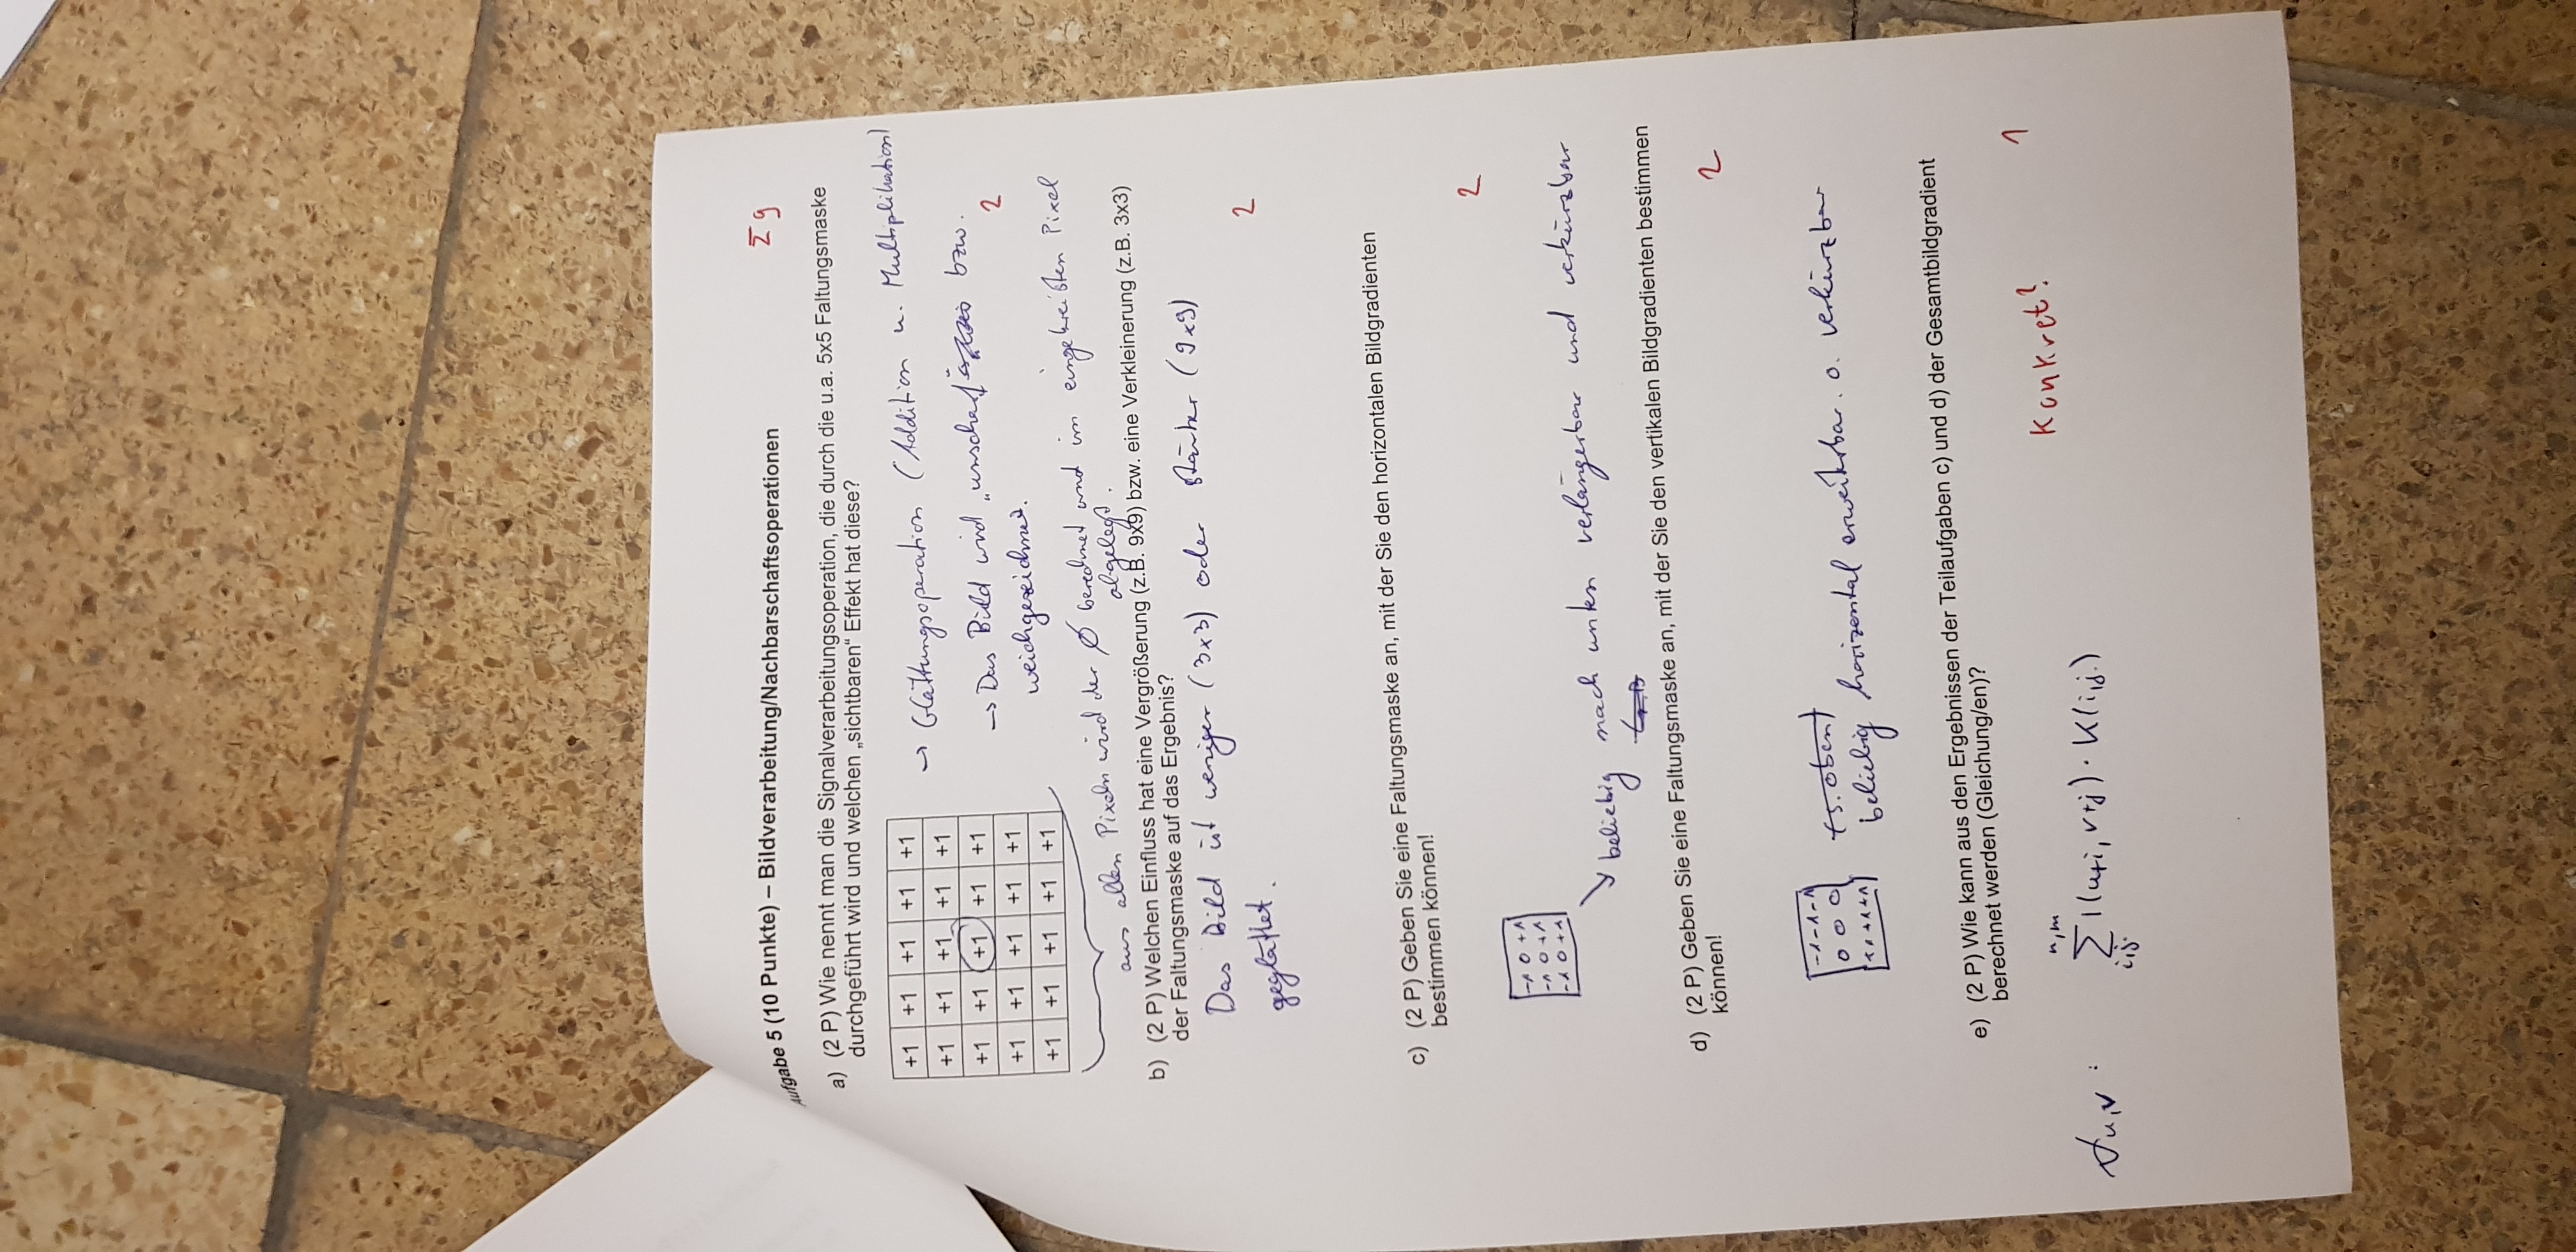 Aufgabe 5 (10 Punkte) – Bildverarbeitung/Nachbarschaftsoperationen
Σ 9
a) (2 P) Wie nennt man die Signalverarbeitungsoperation, die durch die u.a. 5x5 Faltungsmaske
durchgeführt wird und welchen „sichtbaren“ Effekt hat diese?
+1 +1 +1 +1 +1
+1 +1 +1 +1 +1
+1 +1 +1 +1 +1
+1 +1 +1 +1 +1
+1 +1 +1 +1 +1
→ Glättungsoperation (Addition u. Multiplikation)
→ Das Bild wird „unscharf“ bzw.
weichgezeichnet.
2
aus allen Pixeln wird der Ø berechnet und im eingekreisten Pixel
abgelegt.
b) (2 P) Welchen Einfluss hat eine Vergrößerung (z.B. 9x9) bzw. eine Verkleinerung (z.B. 3x3)
der Faltungsmaske auf das Ergebnis?
Das Bild ist weniger (3x3) oder stärker (9x9)
geglättet.
2
c) (2 P) Geben Sie eine Faltungsmaske an, mit der Sie den horizontalen Bildgradienten
bestimmen können!
2
-1 0 +1
-1 0 +1
-1 0 +1
↘ beliebig nach unten verlängerbar und verkürzbar
d) (2 P) Geben Sie eine Faltungsmaske an, mit der Sie den vertikalen Bildgradienten bestimmen
können!
2
-1 -1 -1
0 0 0
+1 +1 +1
(s. oben)
beliebig horizontal erweiterbar. o. verkürzbar
e) (2 P) Wie kann aus den Ergebnissen der Teilaufgaben c) und d) der Gesamtbildgradient
berechnet werden (Gleichung/en)?
Konkret?
1
n,m
∀u,v : Σ I(u+i, v+j) · K(i,j)
i,j